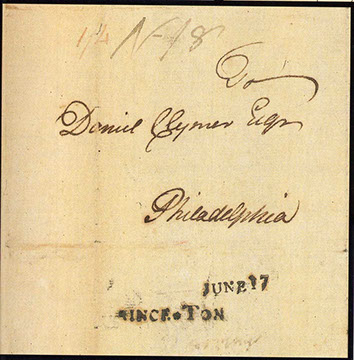 N-18
To
Daniel Clymer Esqr
Philadelphia
JUNE 17
INCE*TON